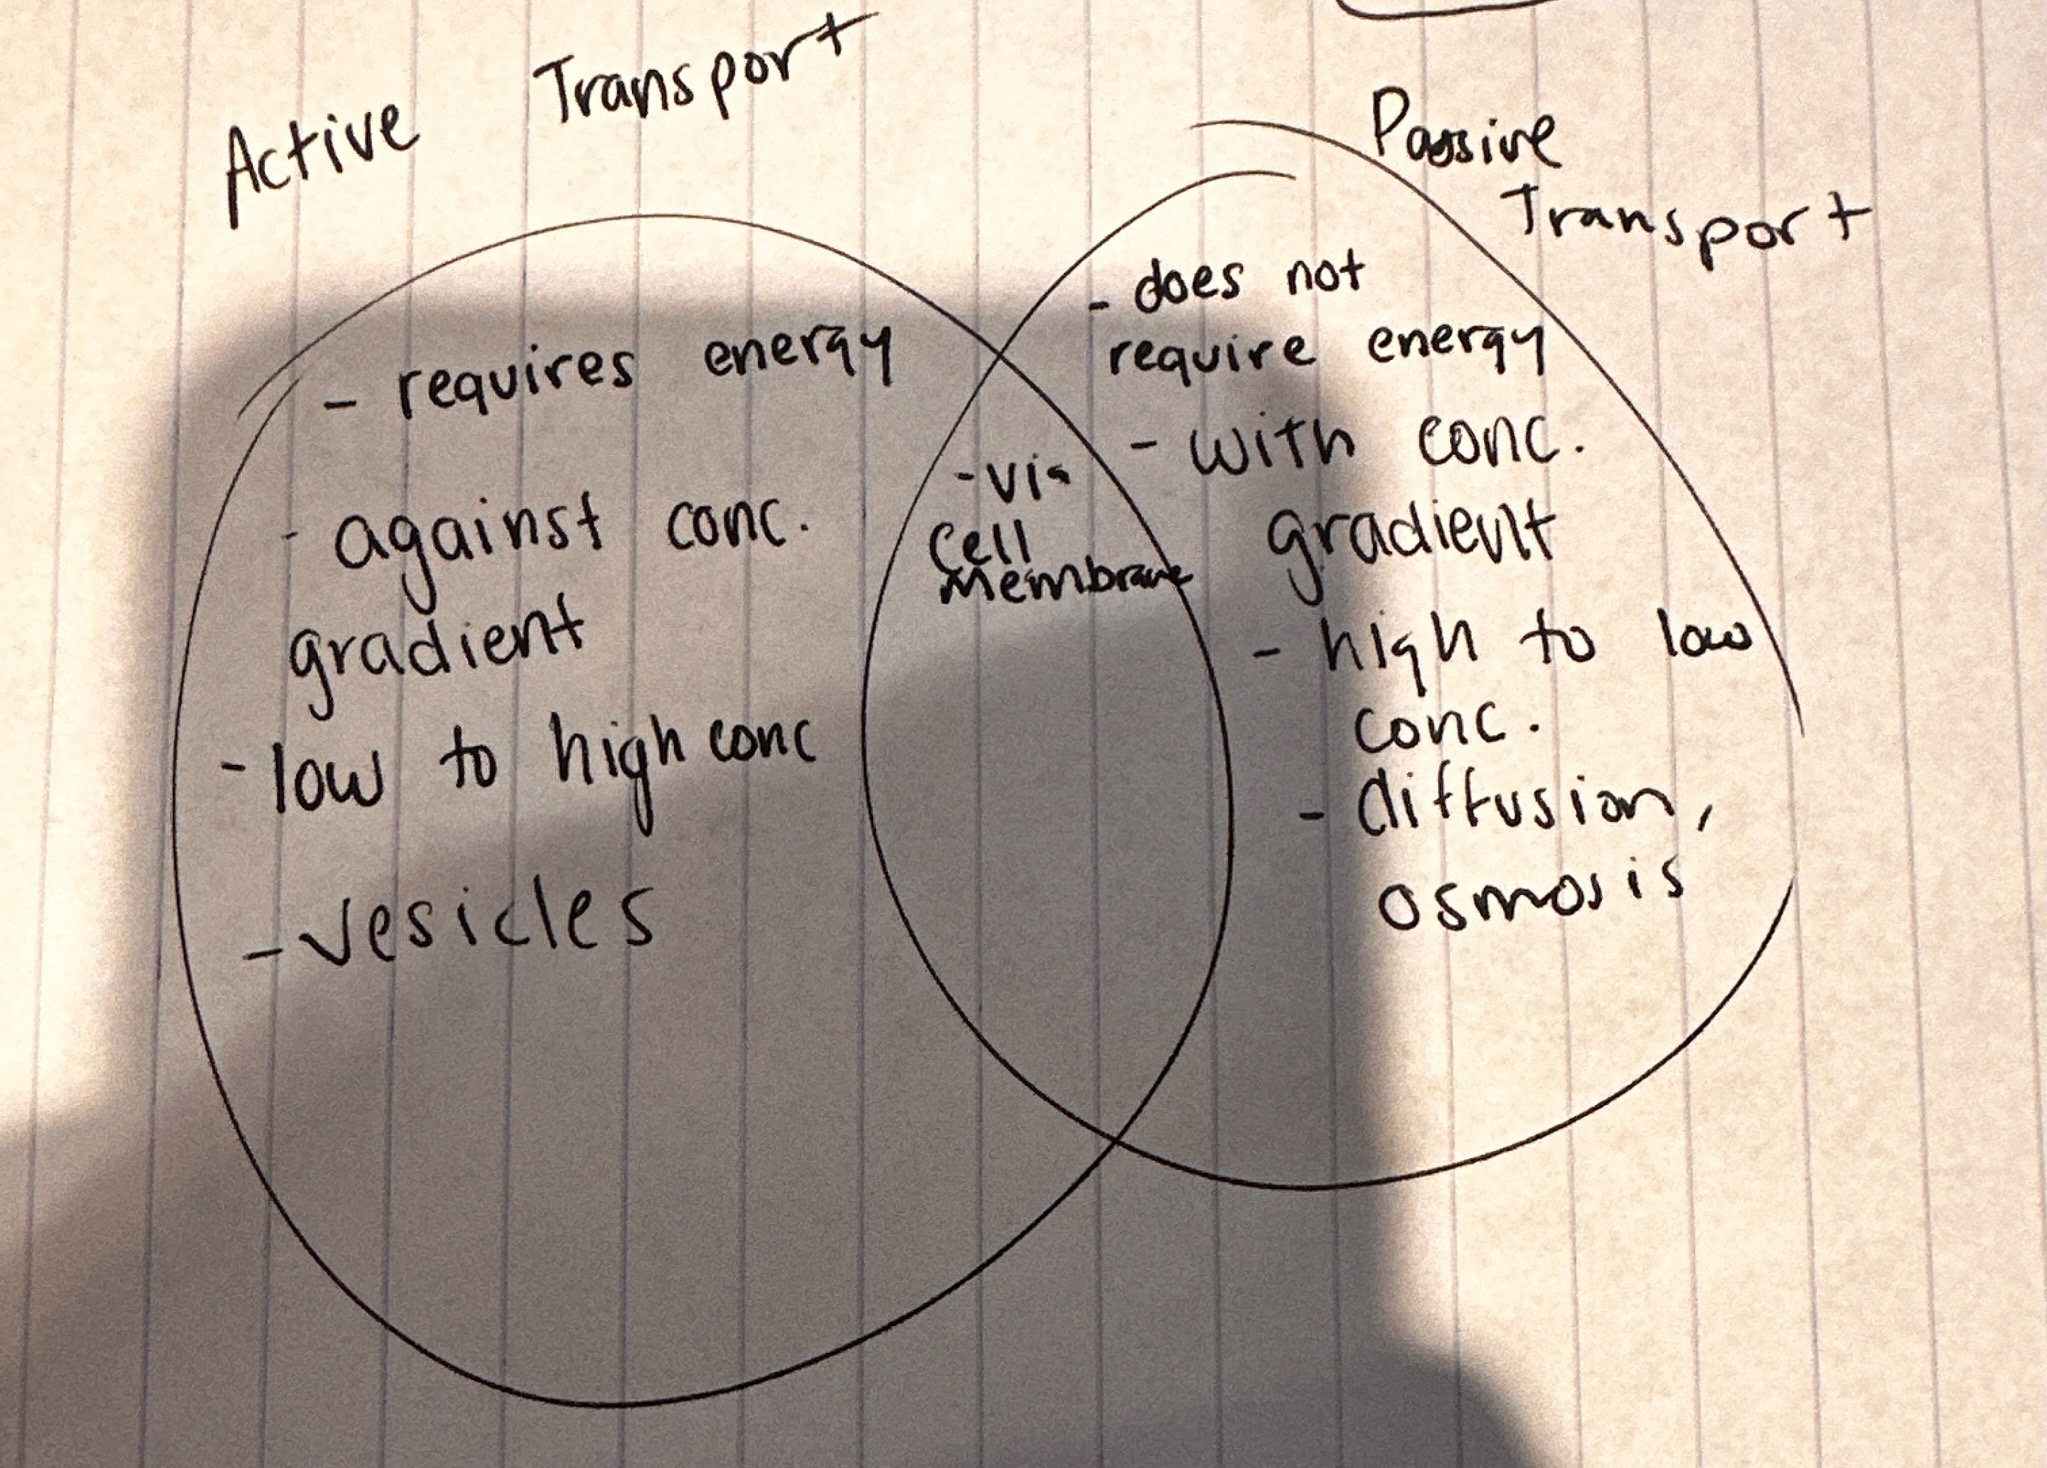 Active Transport
- requires energy
- against conc.
gradient
- low to high conc
- vesicles
- via
cell
membrane
Passive
Transport
- does not
require energy
- with conc.
gradient
- high to low
conc.
- diffusion,
osmosis